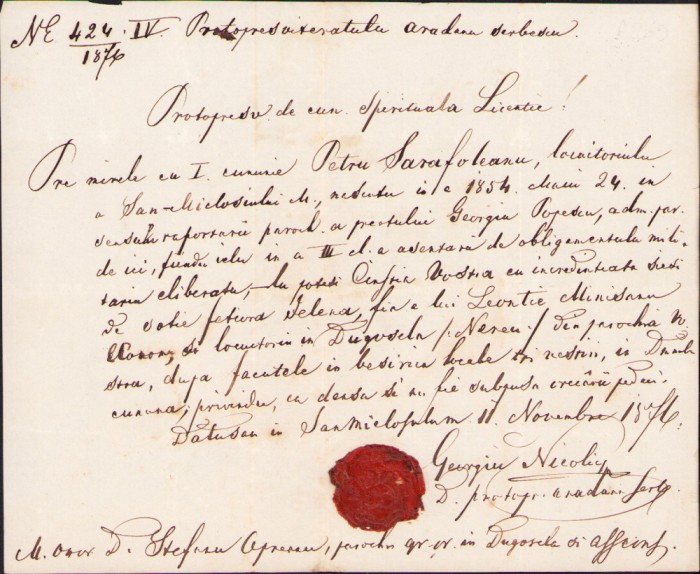 № 424 · IV. Protopresviteratulu aradanu serbescu.
1876
Protopresv. de cun. Spirituala Licentie!
Pre mirele cu I. cununie Petru Sarafoleanu, locuitoriulu
a San-Miclosiului M., nascutu in a 1854. Maiu 24. in
sensulu raportarii paroch. a preotului Georgiu Popescu, adm. par.
de ici, fiindu elu in a III cl. a asentarii de obligamentulu mili-
tariu eliberatu, – lu poteti Cinstia Vostra cu incredintiata siesi
de sotie fetiora Jelena, fia a lui Leontie Minisanu
economu si locuitoriu in Dugosela /: Nereu :/ din parochia Vo-
stra, dupa facutele in beserica vestiri, in Dumne-
cununa, privindu, ca densa si nu fie subpusa
Datusau in SanMiclosulum. 11. Novembre 1876.
Georgiu Nicolics
D. protopr. aradanu serb.
M. Onor D. Stefanu Opreanu, parochu gr. or. in Dugosela si